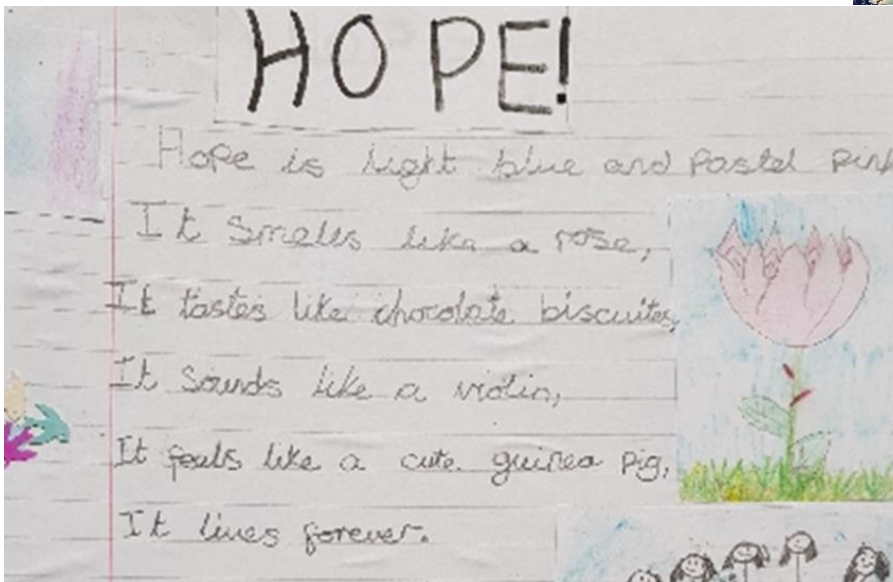 HOPE!
Hope is light blue and pastel pink
It smells like a rose,
It tastes like chocolate biscuites,
It sounds like a violin,
It feels like a cute guinea pig,
It lives forever.